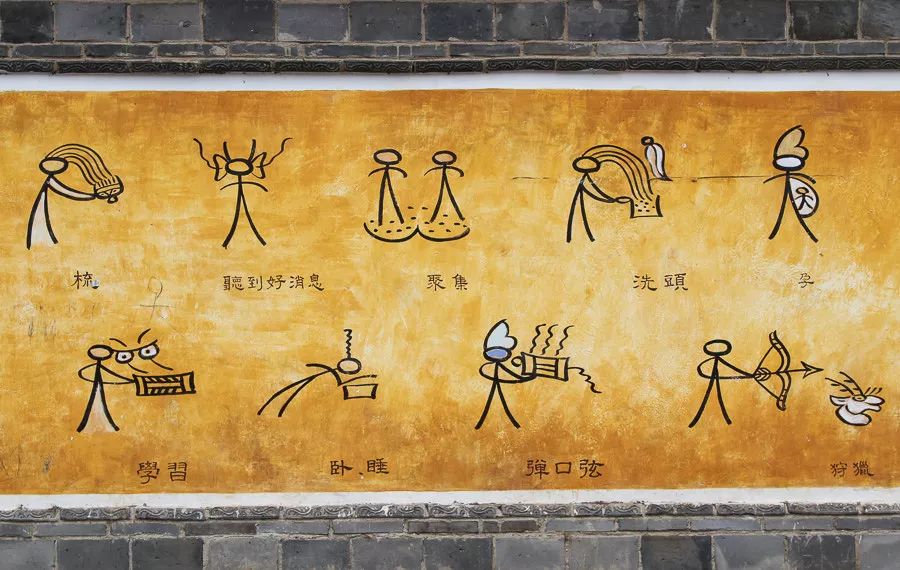 梳 聽到好消息 聚集 洗頭 孕
學習 卧睡 弹口弦 狩獵